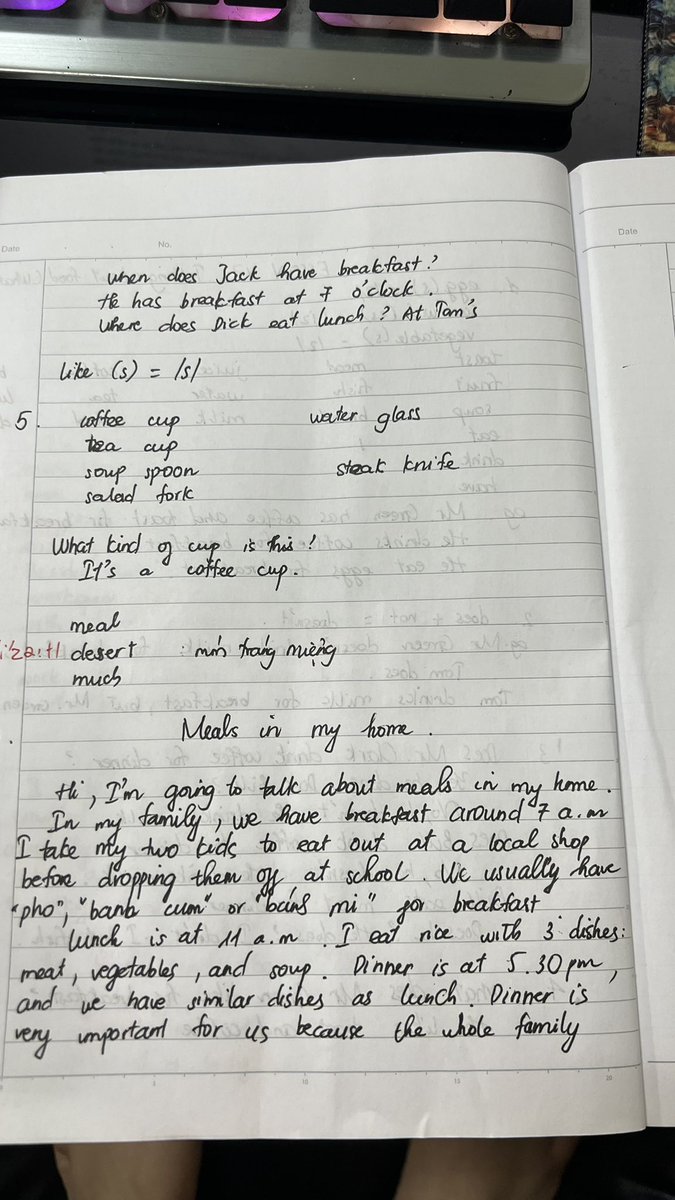 Date No. Date
when does Jack have breakfast?
He has breakfast at 7 o'clock.
where does Dick eat lunch? At Tom's
like (s) = /s/
5. coffee cup water glass
tea cup
soup spoon steak knife
salad fork
What kind of cup is this?
It's a coffee cup.
meal
desert : món tráng miệng
much
Meals in my home.
Hi, I'm going to talk about meals in my home.
In my family, we have breakfast around 7 a.m
I take my two kids to eat out at a local shop
before dropping them off at school. We usually have
"pho", "banh cum" or "bánh mi" for breakfast
lunch is at 11 a.m. I eat rice with 3 dishes:
meat, vegetables, and soup. Dinner is at 5.30 pm,
and we have similar dishes as lunch. Dinner is
very important for us because the whole family
5 10 15 20